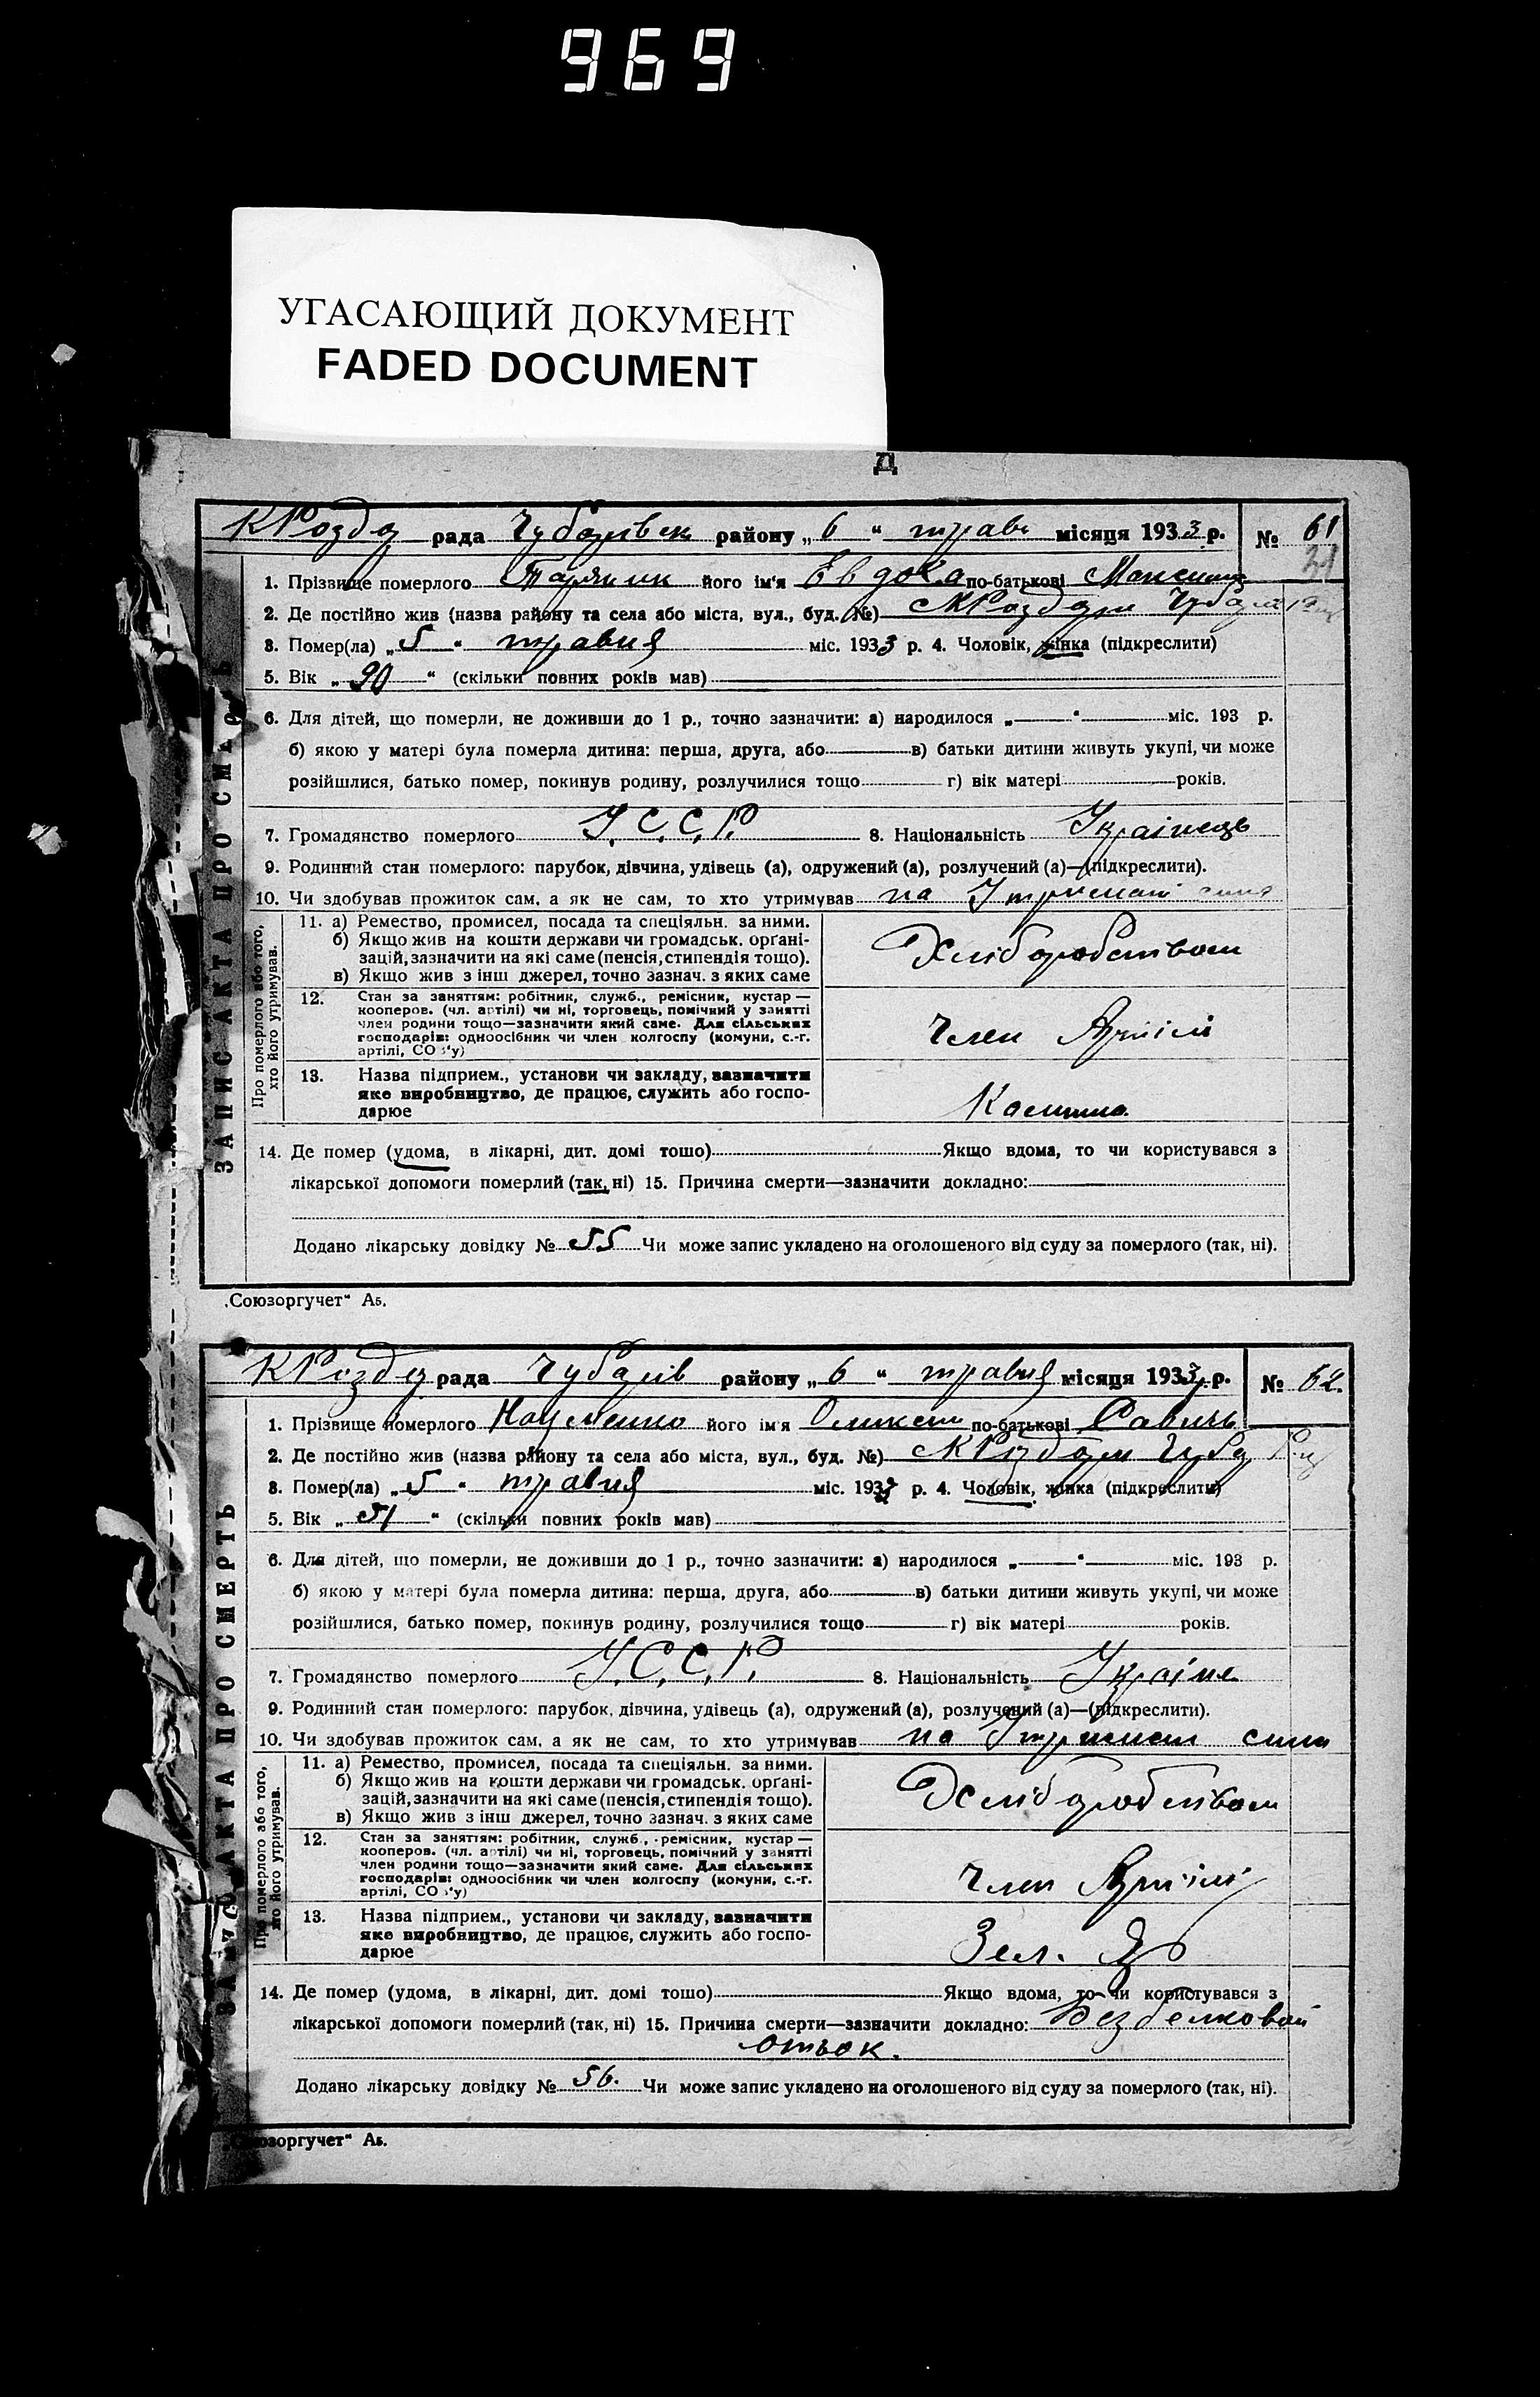 969
УГАСАЮЩИЙ ДОКУМЕНТ
FADED DOCUMENT
Д
КРозд рада Чубарівськ району „ 6 “ трав. місяця 1933 р. № 61
31
1. Прізвище померлого його ім'я Евдока по-батькові Максим
2. Де постійно жив (назва району та села або міста, вул., буд. №)
3. Помер(ла) „ 5 “ травня міс. 1933 р. 4. Чоловік, жінка (підкреслити)
5. Вік „ 90 “ (скільки повних років мав)
6. Для дітей, що померли, не доживши до 1 р., точно зазначити: а) народилося „ “ міс. 193 р.
б) якою у матері була померла дитина: перша, друга, або в) батьки дитини живуть укупі, чи може
розійшлися, батько помер, покинув родину, розлучилися тощо г) вік матері років.
7. Громадянство померлого У.С.С.Р. 8. Національність Українець
9. Родинний стан померлого: парубок, дівчина, удівець (а), одружений (а), розлучений (а)—(підкреслити).
10. Чи здобував прожиток сам, а як не сам, то хто утримував на Утриман сина
ЗАПИС АКТА ПРО СМЕРТЬ
Про померлого або того, хто його утримував.
11. а) Ремество, промисел, посада та спеціяльн. за ними.
б) Якщо жив на кошти держави чи громадськ. орґані-
зацій, зазначити на які саме (пенсія, стипендія тощо).
в) Якщо жив з інш джерел, точно зазнач. з яких саме
Хліборобством
12. Стан за заняттям: робітник, служб., ремісник, кустар —
кооперов. (чл. артілі) чи ні, торговець, помічний у занятті
член родини тощо—зазначити який саме. Для сільських
господарів: одноосібник чи член колгоспу (комуни, с.-г.
артілі, СО у)
Член Артілі
13. Назва підприєм., установи чи закладу, зазначити
яке виробництво, де працює, служить або госпо-
дарює
14. Де помер (удома, в лікарні, дит. домі тошо) Якщо вдома, то чи користувався з
лікарської допомоги померлий (так, ні) 15. Причина смерти—зазначити докладно:
Додано лікарську довідку № 55 Чи може запис укладено на оголошеного від суду за померлого (так, ні).
„Союзоргучет“ А5.
КРозд рада Чубарів району „ 6 “ травня місяця 1933 р. № 62.
1. Прізвище померлого Науменко його ім'я по-батькові Савичь
2. Де постійно жив (назва району та села або міста, вул., буд. №)
3. Помер(ла) „ 5 “ травня міс. 1933 р. 4. Чоловік, жінка (підкреслити)
5. Вік „ 51 “ (скільки повних років мав)
6. Для дітей, що померли, не доживши до 1 р., точно зазначити: а) народилося „ “ міс. 193 р.
б) якою у матері була померла дитина: перша, друга, або в) батьки дитини живуть укупі, чи може
розійшлися, батько помер, покинув родину, розлучилися тощо г) вік матері років.
7. Громадянство померлого У.С.С.Р. 8. Національність Україне
9. Родинний стан померлого: парубок, дівчина, удівець (а), одружений (а), розлучений (а)—(підкреслити).
10. Чи здобував прожиток сам, а як не сам, то хто утримував на Утриман сина
ЗАПИС АКТА ПРО СМЕРТЬ
Про померлого або того, хто його утримував.
11. а) Ремество, промисел, посада та спеціяльн. за ними.
б) Якщо жив на кошти держави чи громадськ. орґані-
зацій, зазначити на які саме (пенсія, стипендія тощо).
в) Якщо жив з інш джерел, точно зазнач. з яких саме
Хліборобством
12. Стан за заняттям: робітник, служб., ремісник, кустар —
кооперов. (чл. артілі) чи ні, торговець, помічний у занятті
член родини тощо—зазначити який саме. Для сільських
господарів: одноосібник чи член колгоспу (комуни, с.-г.
артілі, СО у)
Член Артілі
13. Назва підприєм., установи чи закладу, зазначити
яке виробництво, де працює, служить або госпо-
дарює
Зел. Яр
14. Де помер (удома, в лікарні, дит. домі тошо) Якщо вдома, то чи користувався з
лікарської допомоги померлий (так, ні) 15. Причина смерти—зазначити докладно: Безбелковай
отьок.
Додано лікарську довідку № 56. Чи може запис укладено на оголошеного від суду за померлого (так, ні).
„Союзоргучет“ А5.